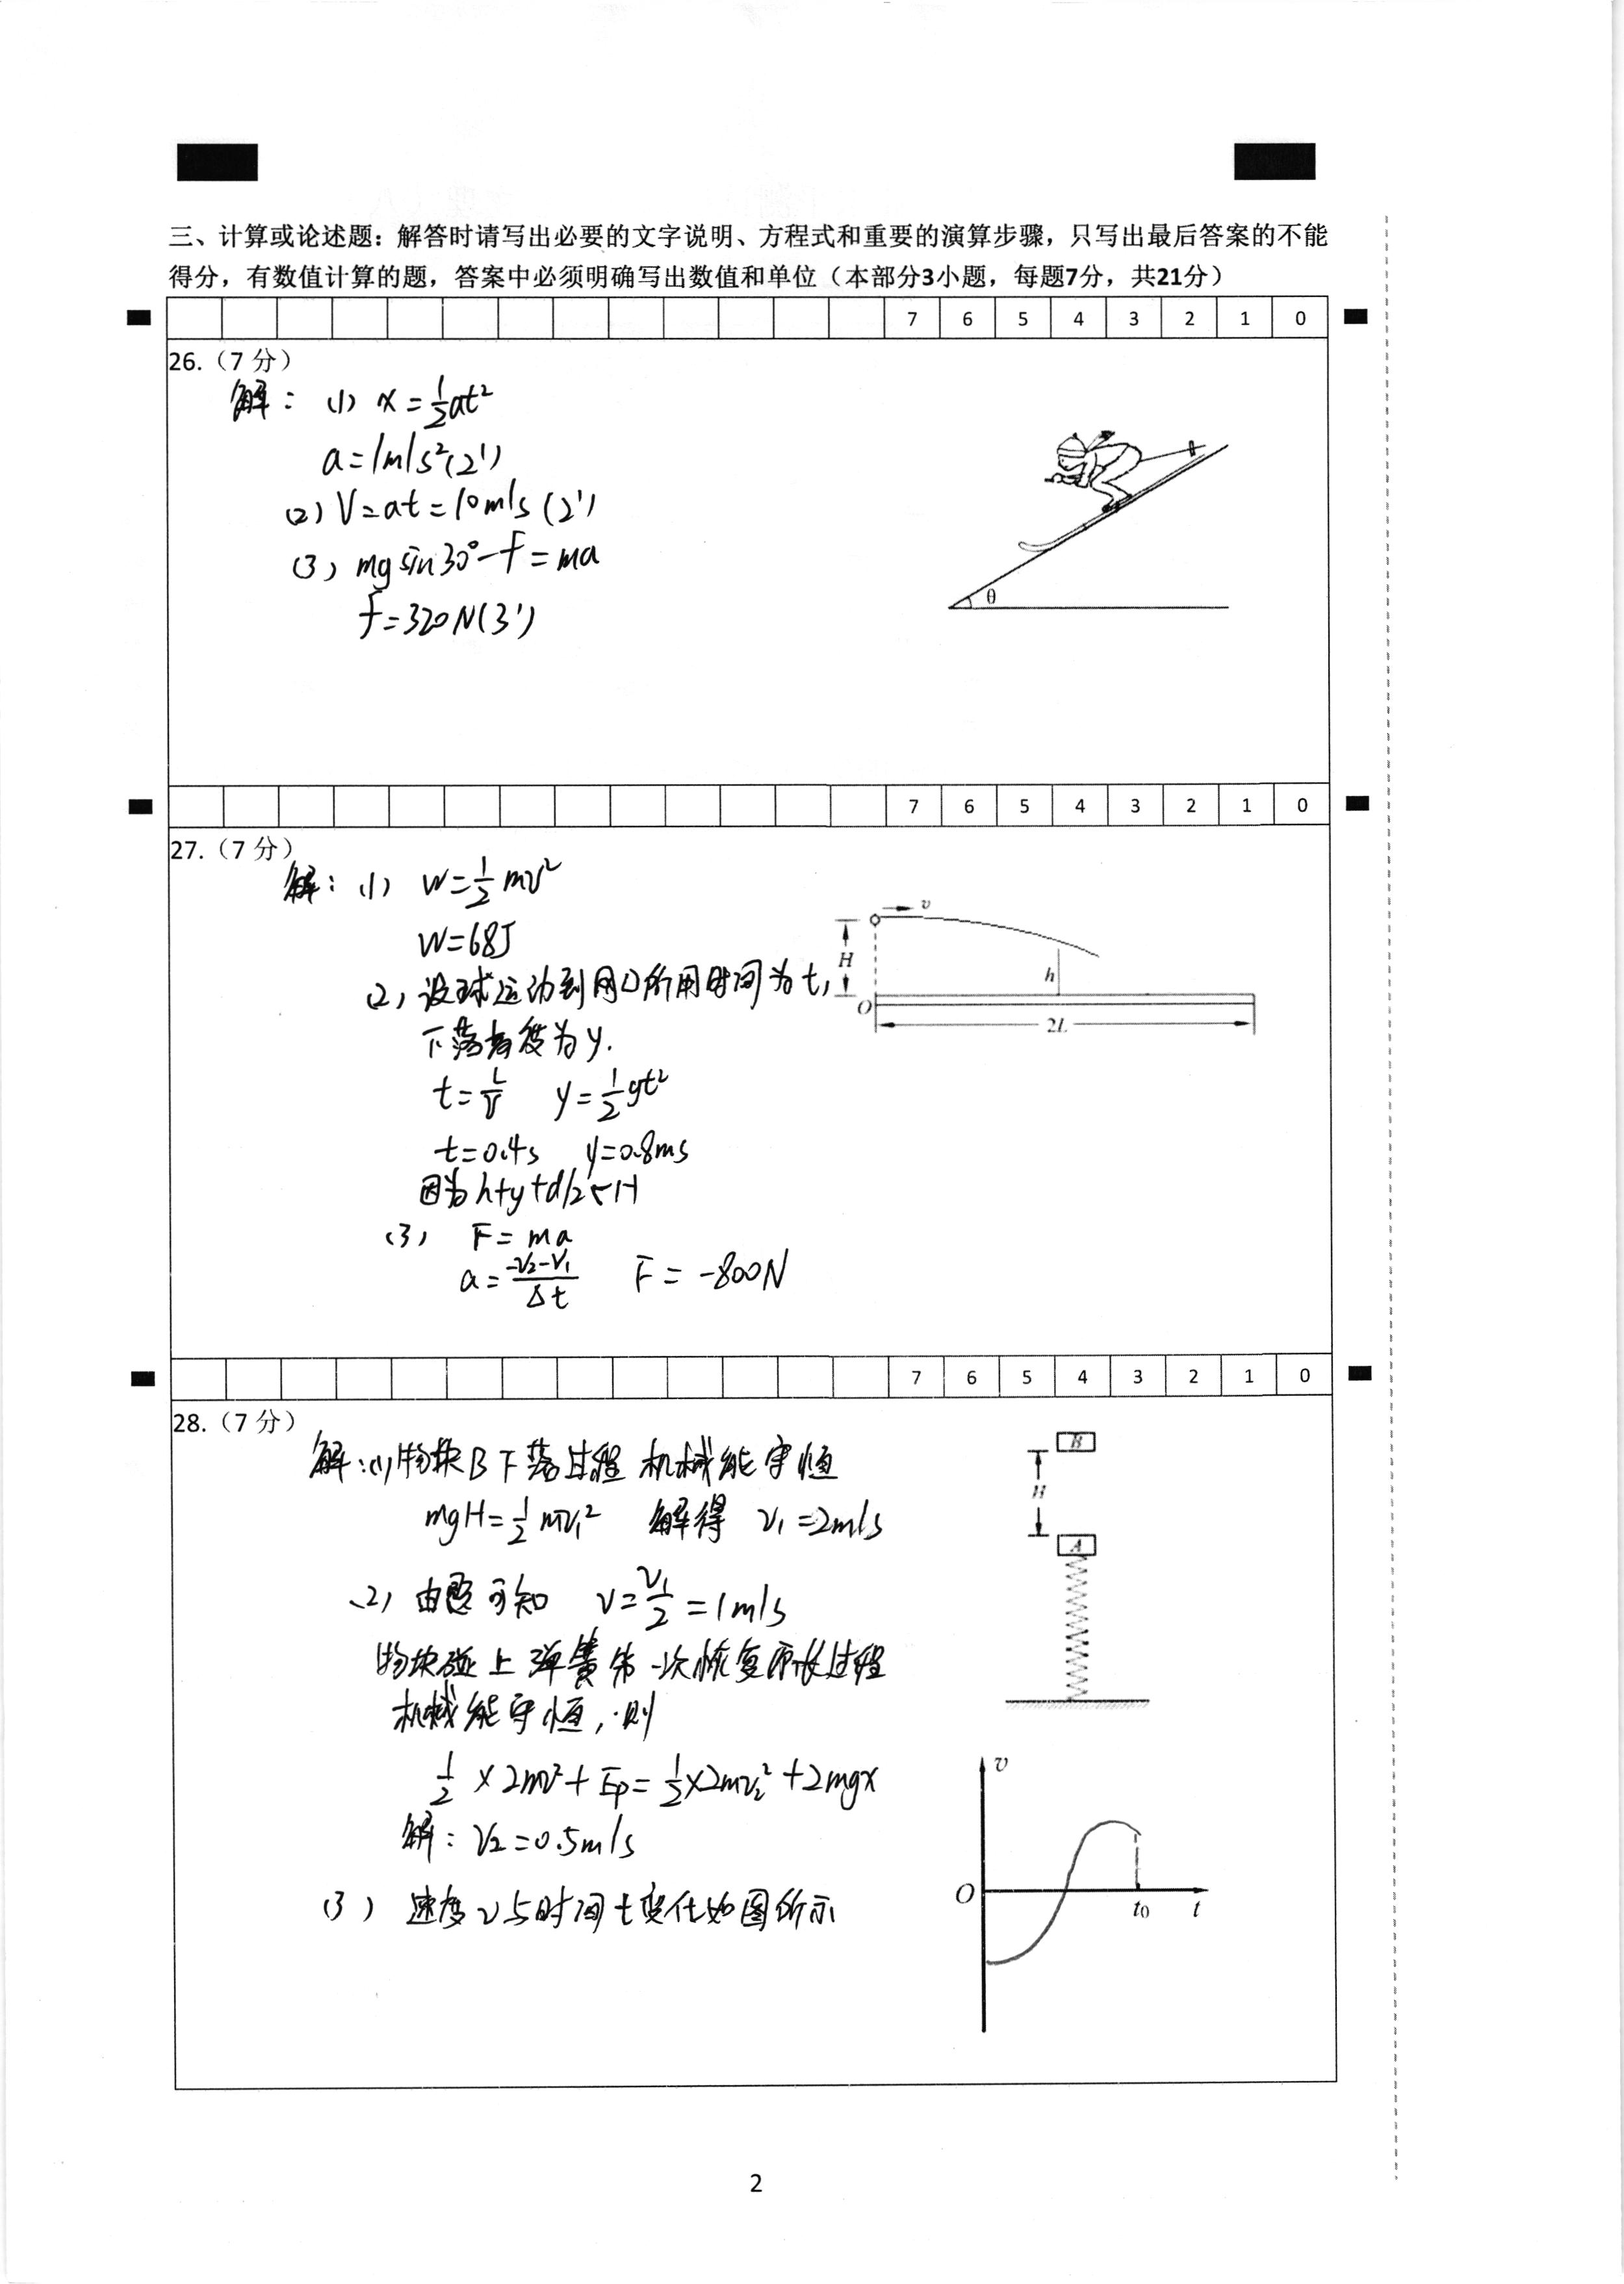 三、计算或论述题：解答时请写出必要的文字说明、方程式和重要的演算步骤，只写出最后答案的不能
得分，有数值计算的题，答案中必须明确写出数值和单位（本部分3小题，每题7分，共21分）
7 6 5 4 3 2 1 0
26.（7 分）
解：(1) x=½at²
a=1m/s²(2')
(2) V=at=10m/s (2')
(3) mg sin30°-f=ma
f=320N(3')
θ
7 6 5 4 3 2 1 0
27.（7 分）
解：(1) W=½mv²
W=68J
(2) 设球运动到网口所用时间为t,
下落高度为y.
t=L/v y=½gt²
t=0.4s y=0.8ms
因为h+y+d/2<H
(3) F=ma
a=(-v₂-v₁)/Δt F=-800N
v
H
h
O
2L
7 6 5 4 3 2 1 0
28.（7 分）
解：(1)物块B下落过程 机械能守恒
mgH=½mv₁² 解得 v₁=2m/s
(2) 由题可知 v=v₁/2=1m/s
物块碰上弹簧第一次恢复原长过程
机械能守恒，则
½×2mv²+Ep=½×2mv₂²+2mgx
解：V₂=0.5m/s
(3) 速度v与时间t变化如图所示
B
H
A
v
O
t₀
t
2